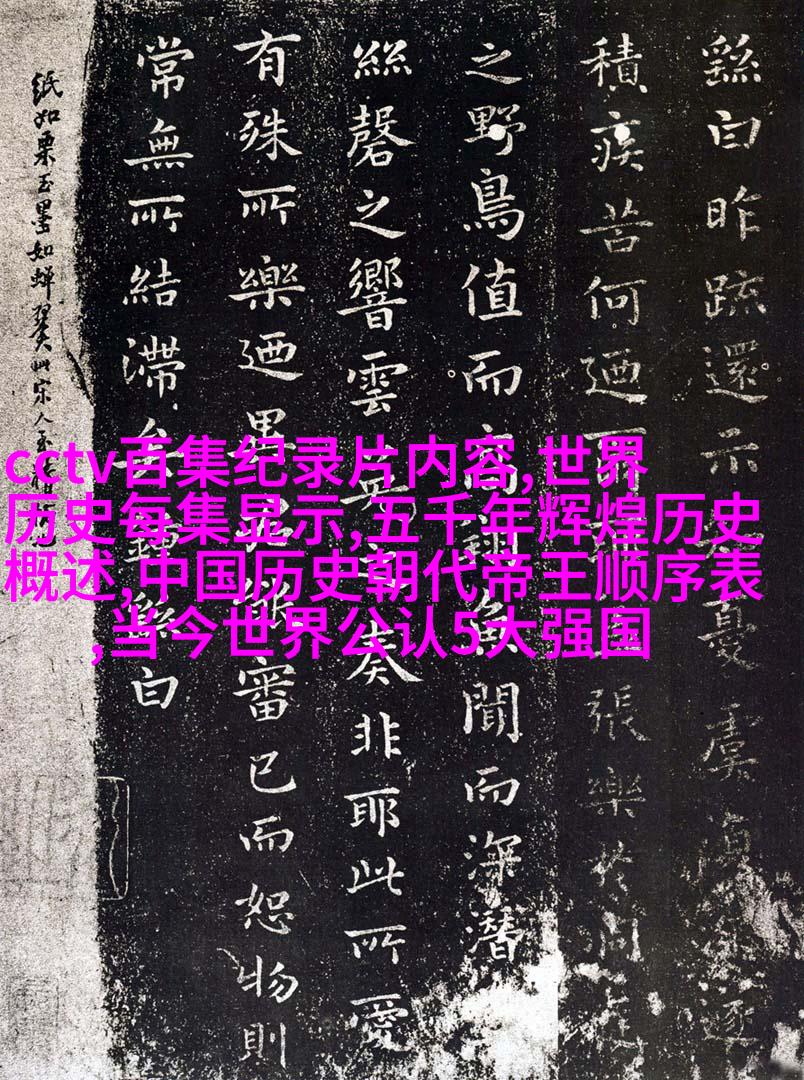 繇白昨疏還示憂虞復深遂
積疾苦何迺張樂於洞庭
之野鳥值而高翔魚聞而深潛
絲磬之響雲英之奏非耶此所愛
有殊所樂迺異能審已而恕物則
常無所結滯鍾繇白
紙如栗玉墨如蟬翼此宋人
cctv百集纪录片内容,世界
历史每集显示,五千年辉煌历史
概述,中国历史朝代帝王顺序表
,当今世界公认5大强国